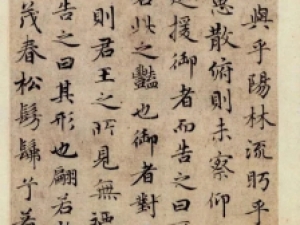 與乎陽林流眄乎
思散俯則未察仰
援御者而告之曰
若此之豔也御者對
則君王之所見無
告之曰其形也翩若
茂春松髣髴兮若